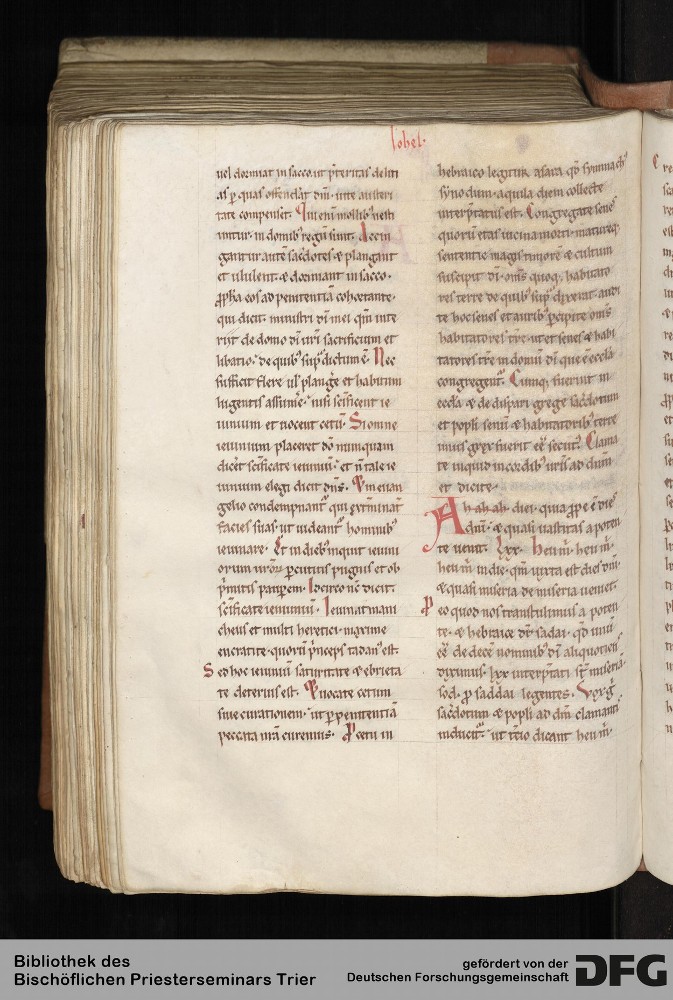 Iohel.
uel dormiat in sacco. ut p̄teritas deliti
as ꝑ quas offendit dn̄m. uite austeri
tate compenset. Qui eni mollibꝰ uesti
untur. in domibꝰ regū sunt. Accin
gantur autē sac̄dotes & plangant
et ululent. & dormiant in sacco.
ꝓph̄a eos ad penitentiā cohortante.
qui dicit. ministri dī mei qm̄ inte
riit de domo dī ur̄i sacrificium et
libatio. de quibꝰ sup̄ dictum ē. Nec
sufficit flere uł planḡe et habitum
lugentis assumē. nisi sc̄ificent ie
iunium et uocent cetū. Si omne
ieiunium placeret dō numquam
dicēt sc̄ificate ieiuniū. et n̄ tale ie
iunium elegi dicit dn̄s. Qui in euan
gelio condempnantᷣ qui extminant
facies suas. ut uideant hominibꝰ
ieiunare. Et in diebꝰ inquit ieiuni
orum ur̄orᷣ percutitis pugnis et op
p̄mitis pauperem. Idcirco nc̄ dicit.
sc̄ificate ieiunium. Ieiunat mani
cheus et multi heretici. maxime
encratite. quorū p̄nceps tadanꝰ est.
Sed hoc ieiuniū saturitate & ebrieta
te deterius est. Et uocate cetum
siue curationem. ut per penitentiā
peccata nr̄a curemus. Pro cetu in
hebraico legitur asara. qd̄ symmachꝰ
synodum. aquila diem collecte
interp̄tatus est. Congregate senes
quorū etas uicina morti. matureq;
sententie magis timorē & cultum
suscipit dī. om̄s quoq; habitato
res terre de quibꝰ sup̄ dixerat. audi
te hoc senes et auribꝰ percipite om̄s
habitatores trē. ut et senes & habi
tatores trē in domū dī que ē eccl̄a
congregentᷣ. Cumq; fuerint in
eccl̄a & de dispari grege sac̄dotum
et popli senū & habitatoribꝰ terre
unus grex fuerit eē secutꝰ. Clama
te inquid in cordibꝰ ur̄is ad dn̄um
et dicite.
Ah ah ah. diei. quia prope ē dies
dn̄i. & quasi uastitas a poten
te uenit. lxx. heu m̄. heu m̄.
heu m̄ in die. qm̄ iuxta est dies dn̄i.
& quasi miseria de miseria ueniet.
Pro eo quod nos transtulimus a poten
te. & hebraice dr̄ sadai. qd̄ unū
eē de decē nominibꝰ dī aliquotiens
diximus. lxx interp̄tati st̄ miseriā.
sod. ꝓ saddai legentes.
sac̄dotum & popli ad dn̄m clamanti
inducitᷣ. ut tc̄io dicant heu m̄.
Bibliothek des
Bischöflichen Priesterseminars Trier
gefördert von der
Deutschen Forschungsgemeinschaft
DFG